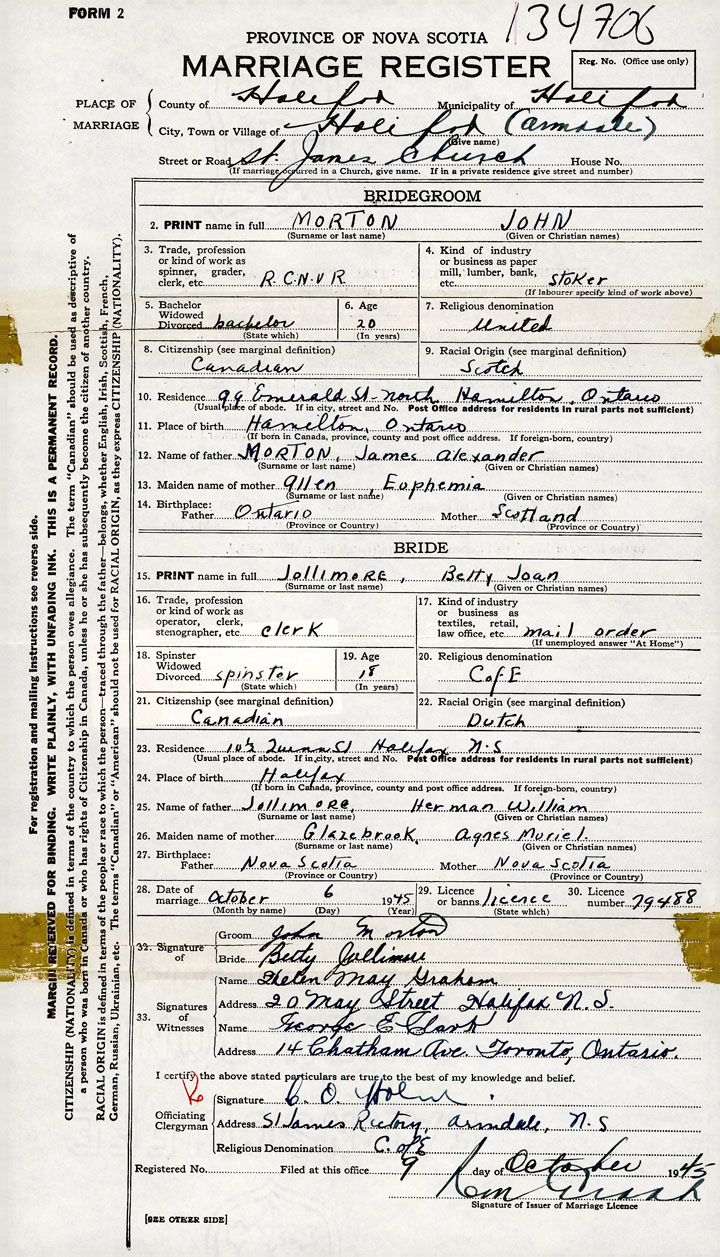 FORM 2
134706
PROVINCE OF NOVA SCOTIA
MARRIAGE REGISTER
Reg. No. (Office use only)
PLACE OF MARRIAGE
County of Halifax Municipality of Halifax
City, Town or Village of Halifax (Armdale)
(Give name)
Street or Road St. James Church House No.
(If marriage occurred in a Church, give name. If in a private residence give street and number)
BRIDEGROOM
2. PRINT name in full MORTON JOHN
(Surname or last name) (Given or Christian names)
3. Trade, profession or kind of work as spinner, grader, clerk, etc. R.C.N.V.R
4. Kind of industry or business as paper mill, lumber, bank, etc. Stoker
(If labourer specify kind of work above)
5. Bachelor Widowed Divorced bachelor
(State which)
6. Age 20
(In years)
7. Religious denomination United
8. Citizenship (see marginal definition) Canadian
9. Racial Origin (see marginal definition) Scotch
10. Residence 99 Emerald St-north Hamilton, Ontario
(Usual place of abode. If in city, street and No. Post Office address for residents in rural parts not sufficient)
11. Place of birth Hamilton, Ontario
(If born in Canada, province, county and post office address. If foreign-born, country)
12. Name of father MORTON, James Alexander
(Surname or last name) (Given or Christian names)
13. Maiden name of mother Allen, Euphemia
(Surname or last name) (Given or Christian names)
14. Birthplace: Father Ontario Mother Scotland
(Province or Country) (Province or Country)
BRIDE
15. PRINT name in full JolliMORE, Betty Joan
(Surname or last name) (Given or Christian names)
16. Trade, profession or kind of work as operator, clerk, stenographer, etc. clerk
17. Kind of industry or business as textiles, retail, law office, etc. mail order
(If unemployed answer "At Home")
18. Spinster Widowed Divorced spinster
(State which)
19. Age 18
(In years)
20. Religious denomination C of E
21. Citizenship (see marginal definition) Canadian
22. Racial Origin (see marginal definition) Dutch
23. Residence 10½ Quinn St Halifax N.S
(Usual place of abode. If in city, street and No. Post Office address for residents in rural parts not sufficient)
24. Place of birth Halifax
(If born in Canada, province, county and post office address. If foreign-born, country)
25. Name of father JolliMORE, Herman William
(Surname or last name) (Given or Christian names)
26. Maiden name of mother Glazebrook, Agnes Muriel
(Surname or last name) (Given or Christian names)
27. Birthplace: Father Nova Scotia Mother Nova Scotia
(Province or Country) (Province or Country)
28. Date of marriage October 6 1945
(Month by name) (Day) (Year)
29. Licence or banns licence
(State which)
30. Licence number 79488
32. Signature of
Groom John Morton
Bride Betty Jollimore
33. Signatures of Witnesses
Name Helen May Graham
Address 20 May Street Halifax N.S.
Name George E Clark
Address 14 Chatham Ave. Toronto, Ontario.
I certify the above stated particulars are true to the best of my knowledge and belief.
Officiating Clergyman
Signature C. O.
Address St James Rectory, Armdale, N.S
Religious Denomination C. of E
Registered No. Filed at this office 9 day of October 1945
Signature of Issuer of Marriage Licence
[SEE OTHER SIDE]
For registration and mailing instructions see reverse side.
MARGIN RESERVED FOR BINDING. WRITE PLAINLY, WITH UNFADING INK. THIS IS A PERMANENT RECORD.
CITIZENSHIP (NATIONALITY) is defined in terms of the country to which the person owes allegiance. The term "Canadian" should be used as descriptive of
a person who was born in Canada or who has rights of Citizenship in Canada, unless he or she has subsequently become the citizen of another country.
RACIAL ORIGIN is defined in terms of the people or race to which the person—traced through the father—belongs, whether English, Irish, Scottish, French,
German, Russian, Ukrainian, etc. The terms "Canadian" or "American" should not be used for RACIAL ORIGIN, as they express CITIZENSHIP (NATIONALITY).